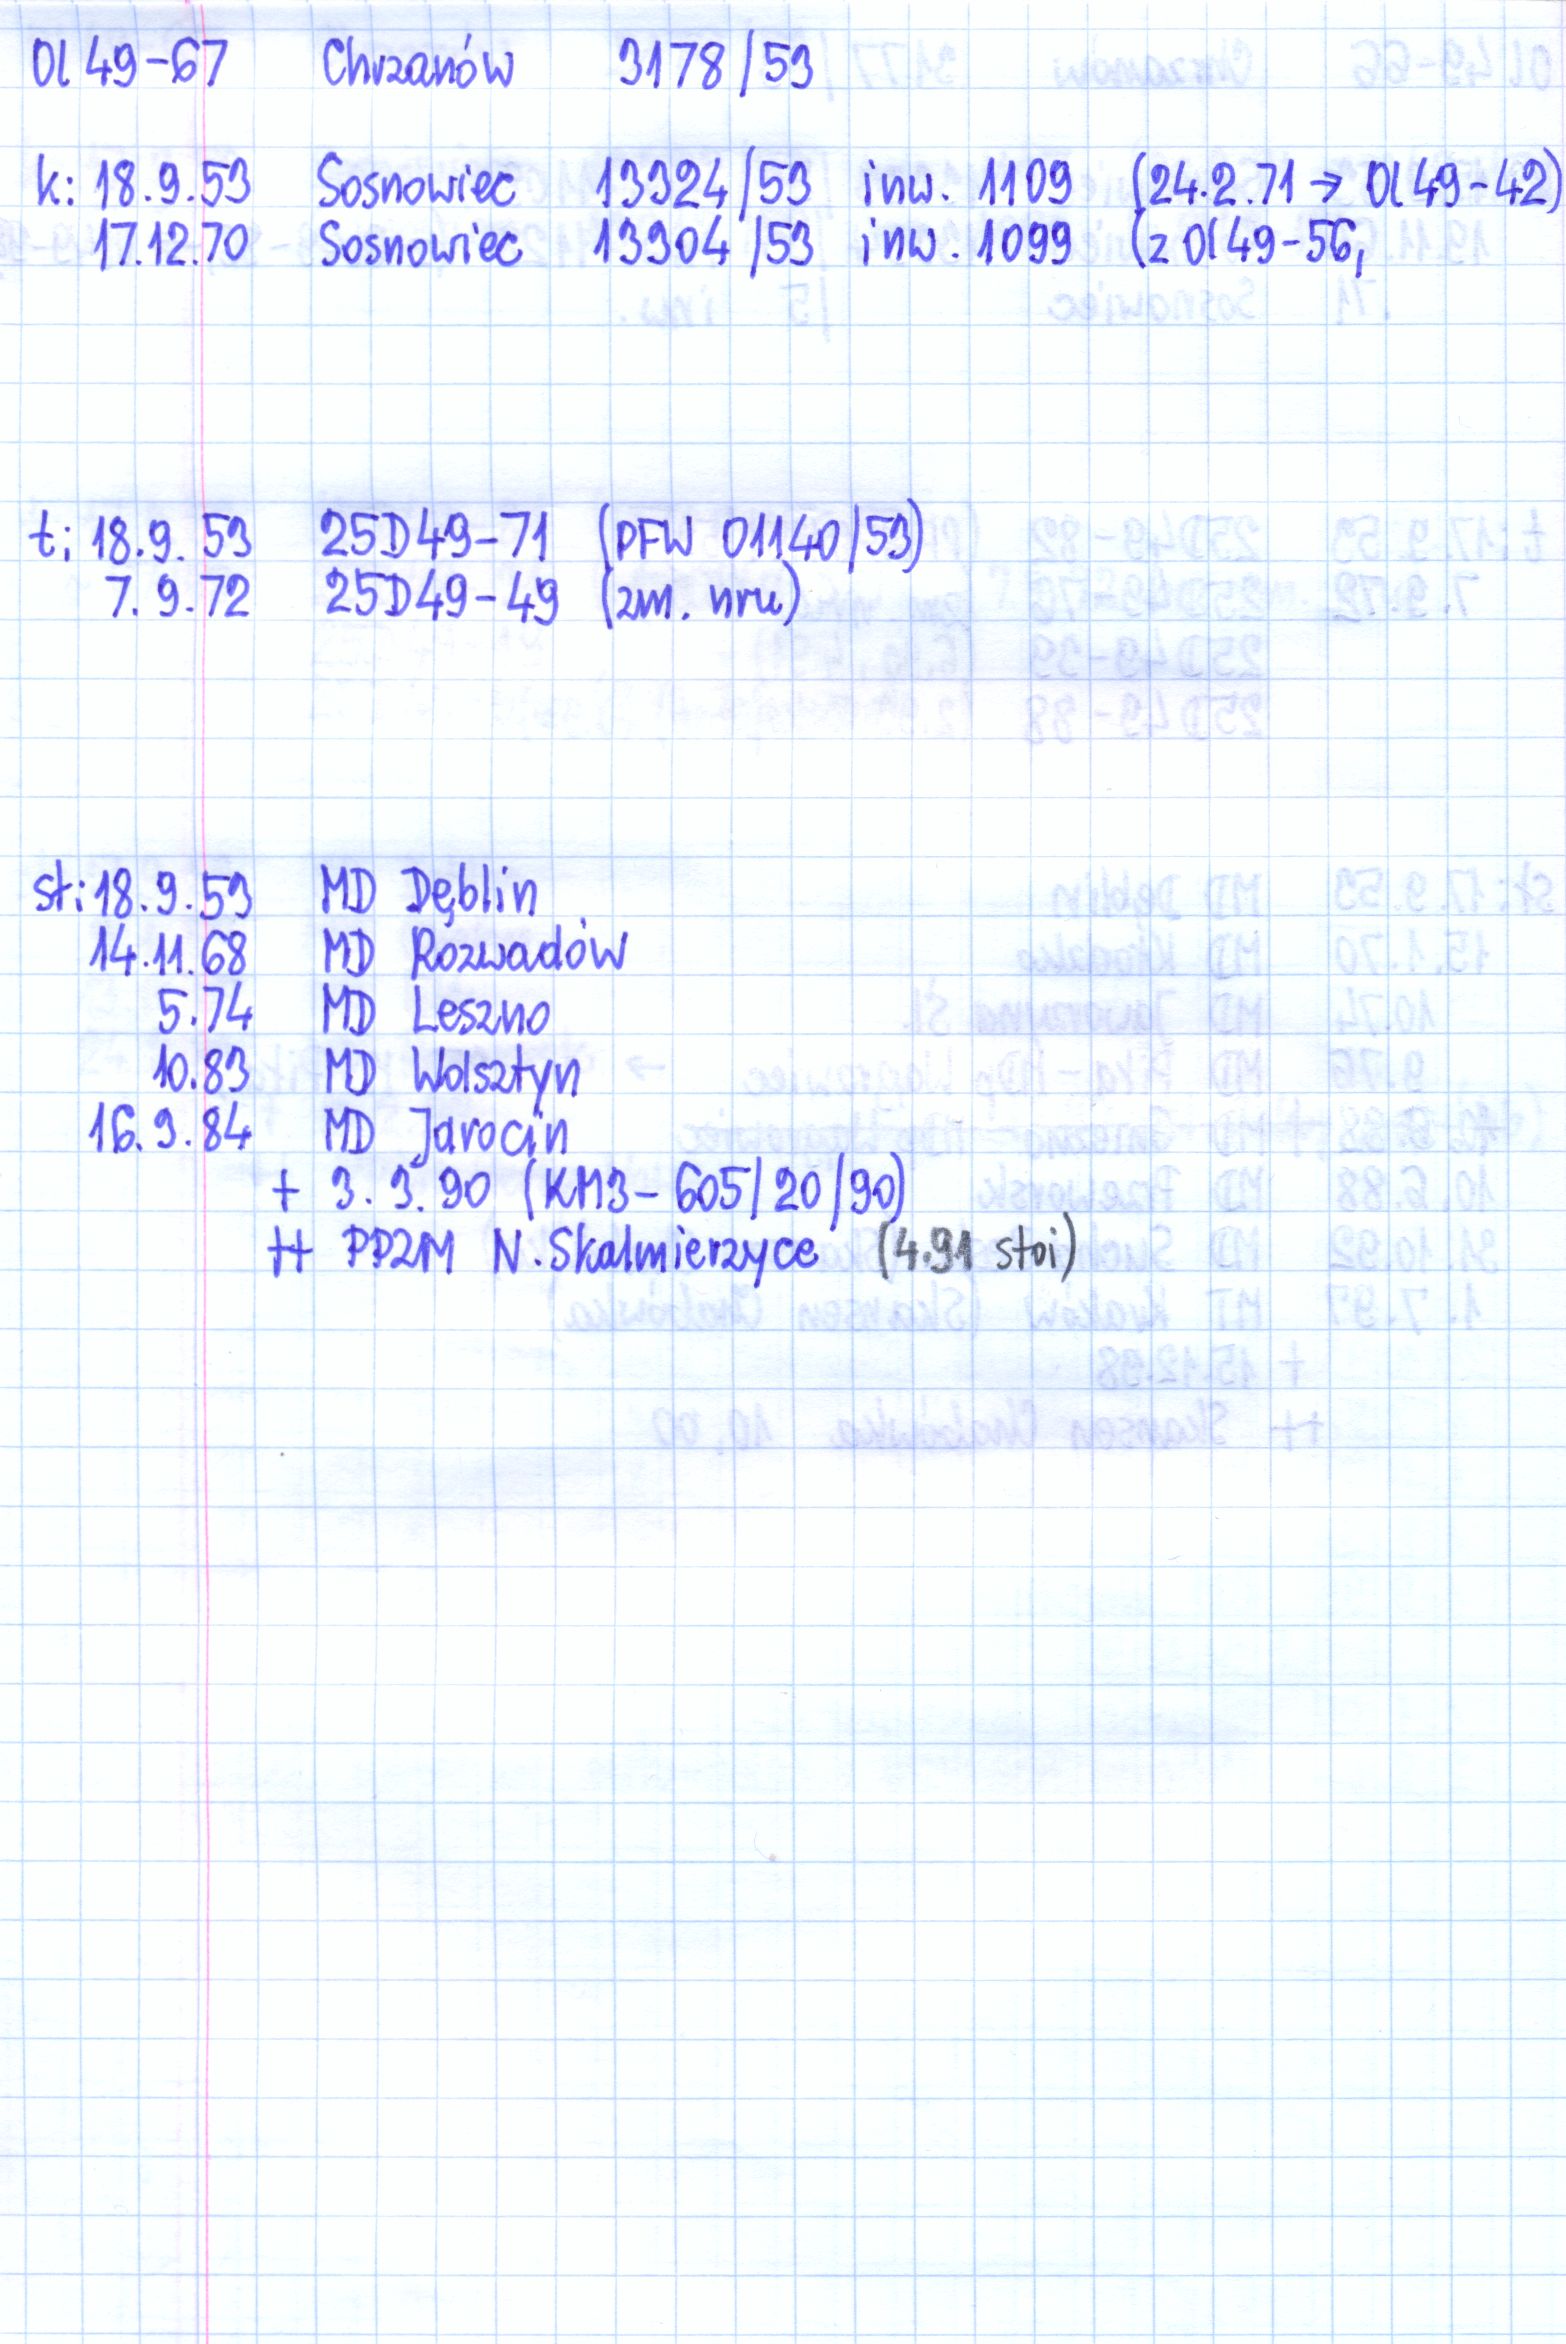 Ol 49-67 Chrzanów 3178/53
k: 18.9.53 Sosnowiec 13324/53 inw. 1109 (24.2.71 → Ol 49-42)
17.12.70 Sosnowiec 13304/53 inw. 1099 (z Ol 49-56,
t: 18.9.53 25D49-71 (PFW 01140/53)
7.9.72 25D49-49 (zm. nru)
st: 18.9.53 MD Dęblin
14.11.68 MD Rozwadów
5.74 MD Leszno
10.83 MD Wolsztyn
16.9.84 MD Jarocin
+ 3.3.90 (KM3-605/20/90)
++ PPZM N. Skalmierzyce (4.91 stoi)